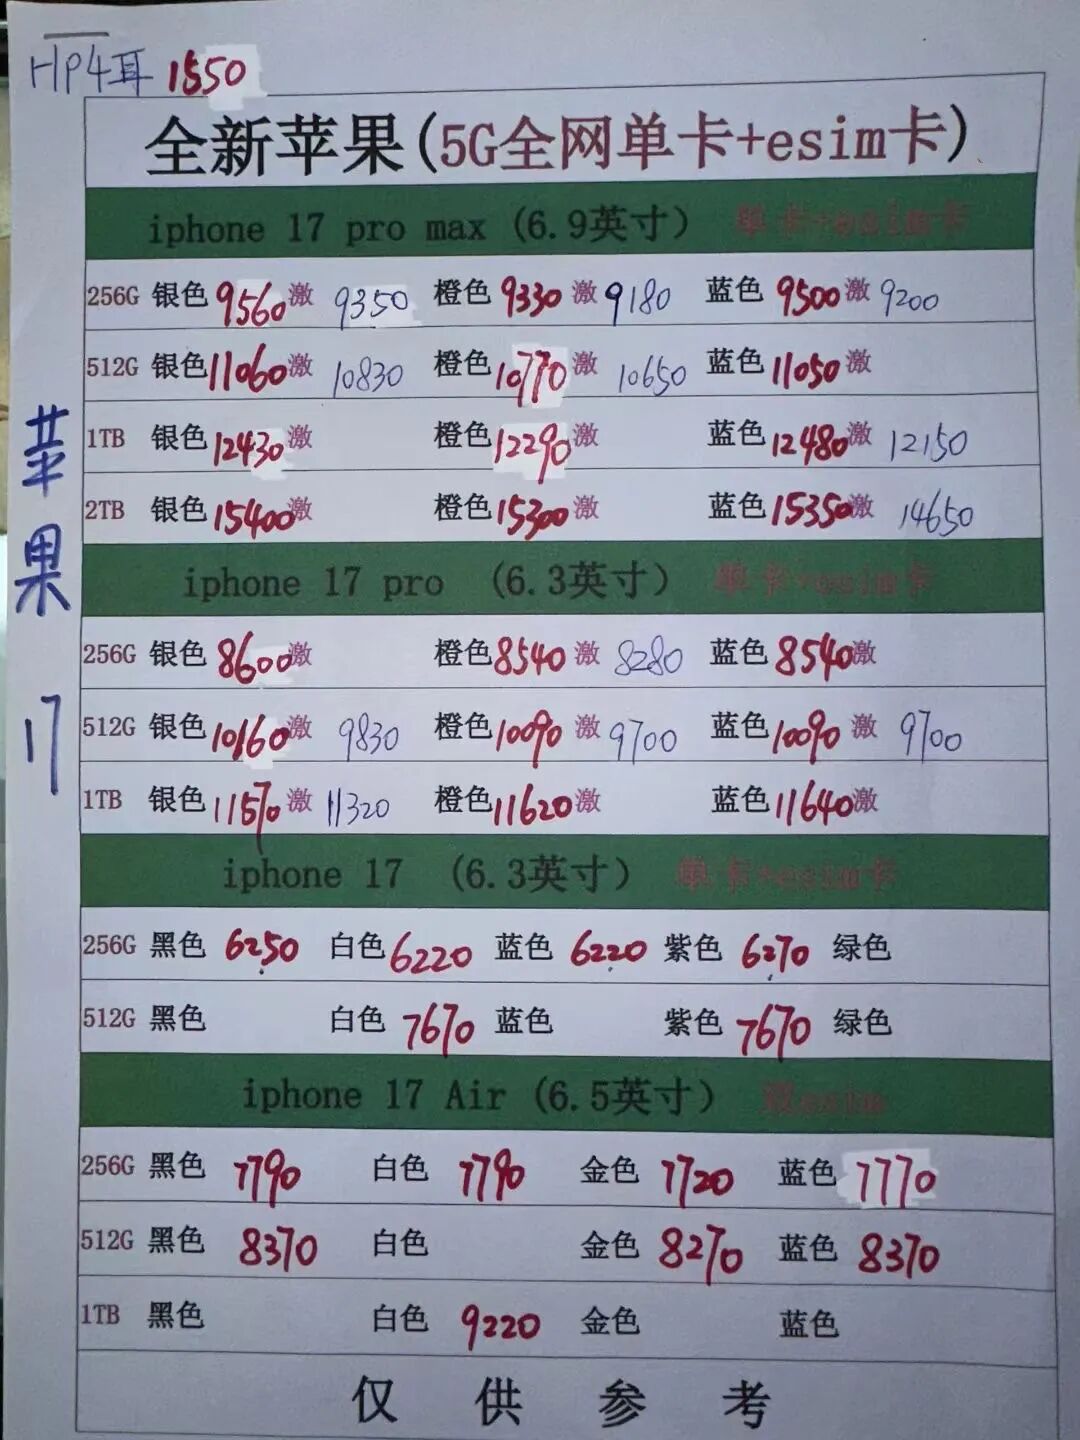 HP4耳 1550
全新苹果(5G全网单卡+esim卡)
iphone 17 pro max (6.9英寸) 单卡+esim卡
256G 银色 9560 激 9350 橙色 9330 激 9180 蓝色 9500 激 9200
512G 银色 11060 激 10830 橙色 10770 激 10650 蓝色 11050 激
1TB 银色 12430 激 橙色 12290 激 蓝色 12480 激 12150
2TB 银色 15400 激 橙色 15300 激 蓝色 15350 激 14650
iphone 17 pro (6.3英寸) 单卡+esim卡
256G 银色 8600 激 橙色 8540 激 8280 蓝色 8540 激
512G 银色 10160 激 9830 橙色 10090 激 9700 蓝色 10090 激 9700
1TB 银色 11570 激 11320 橙色 11620 激 蓝色 11640 激
iphone 17 (6.3英寸) 单卡+esim卡
256G 黑色 6250 白色 6220 蓝色 6220 紫色 6270 绿色
512G 黑色 白色 7670 蓝色 紫色 7670 绿色
iphone 17 Air (6.5英寸) 双esim
256G 黑色 7790 白色 7790 金色 7720 蓝色 7770
512G 黑色 8370 白色 金色 8270 蓝色 8370
1TB 黑色 白色 9220 金色 蓝色
仅供参考
苹果 17